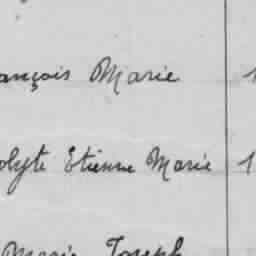 ançois Marie 1
olyte Etienne Marie 1
Marie Joseph